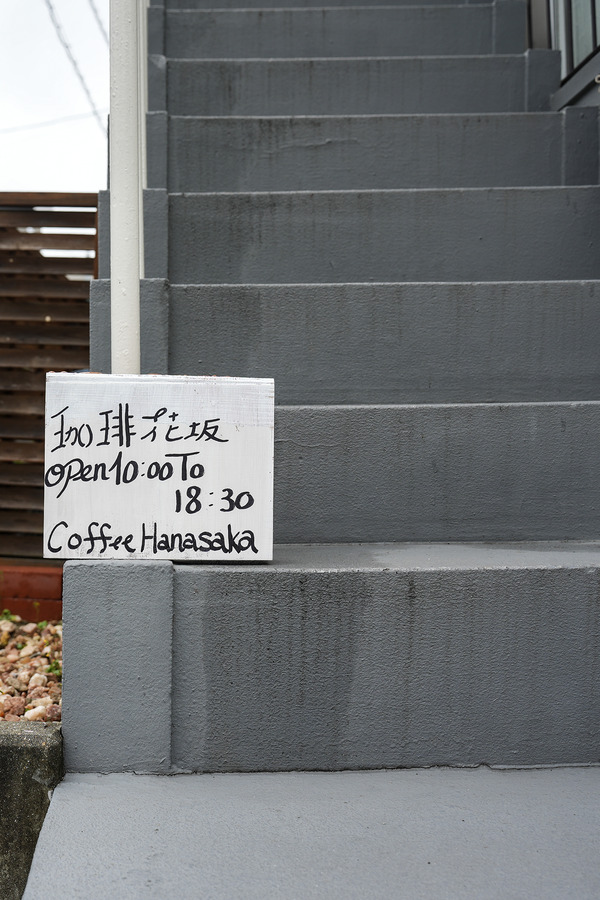 珈琲花坂
open10:00To
18:30
Coffee Hanasaka